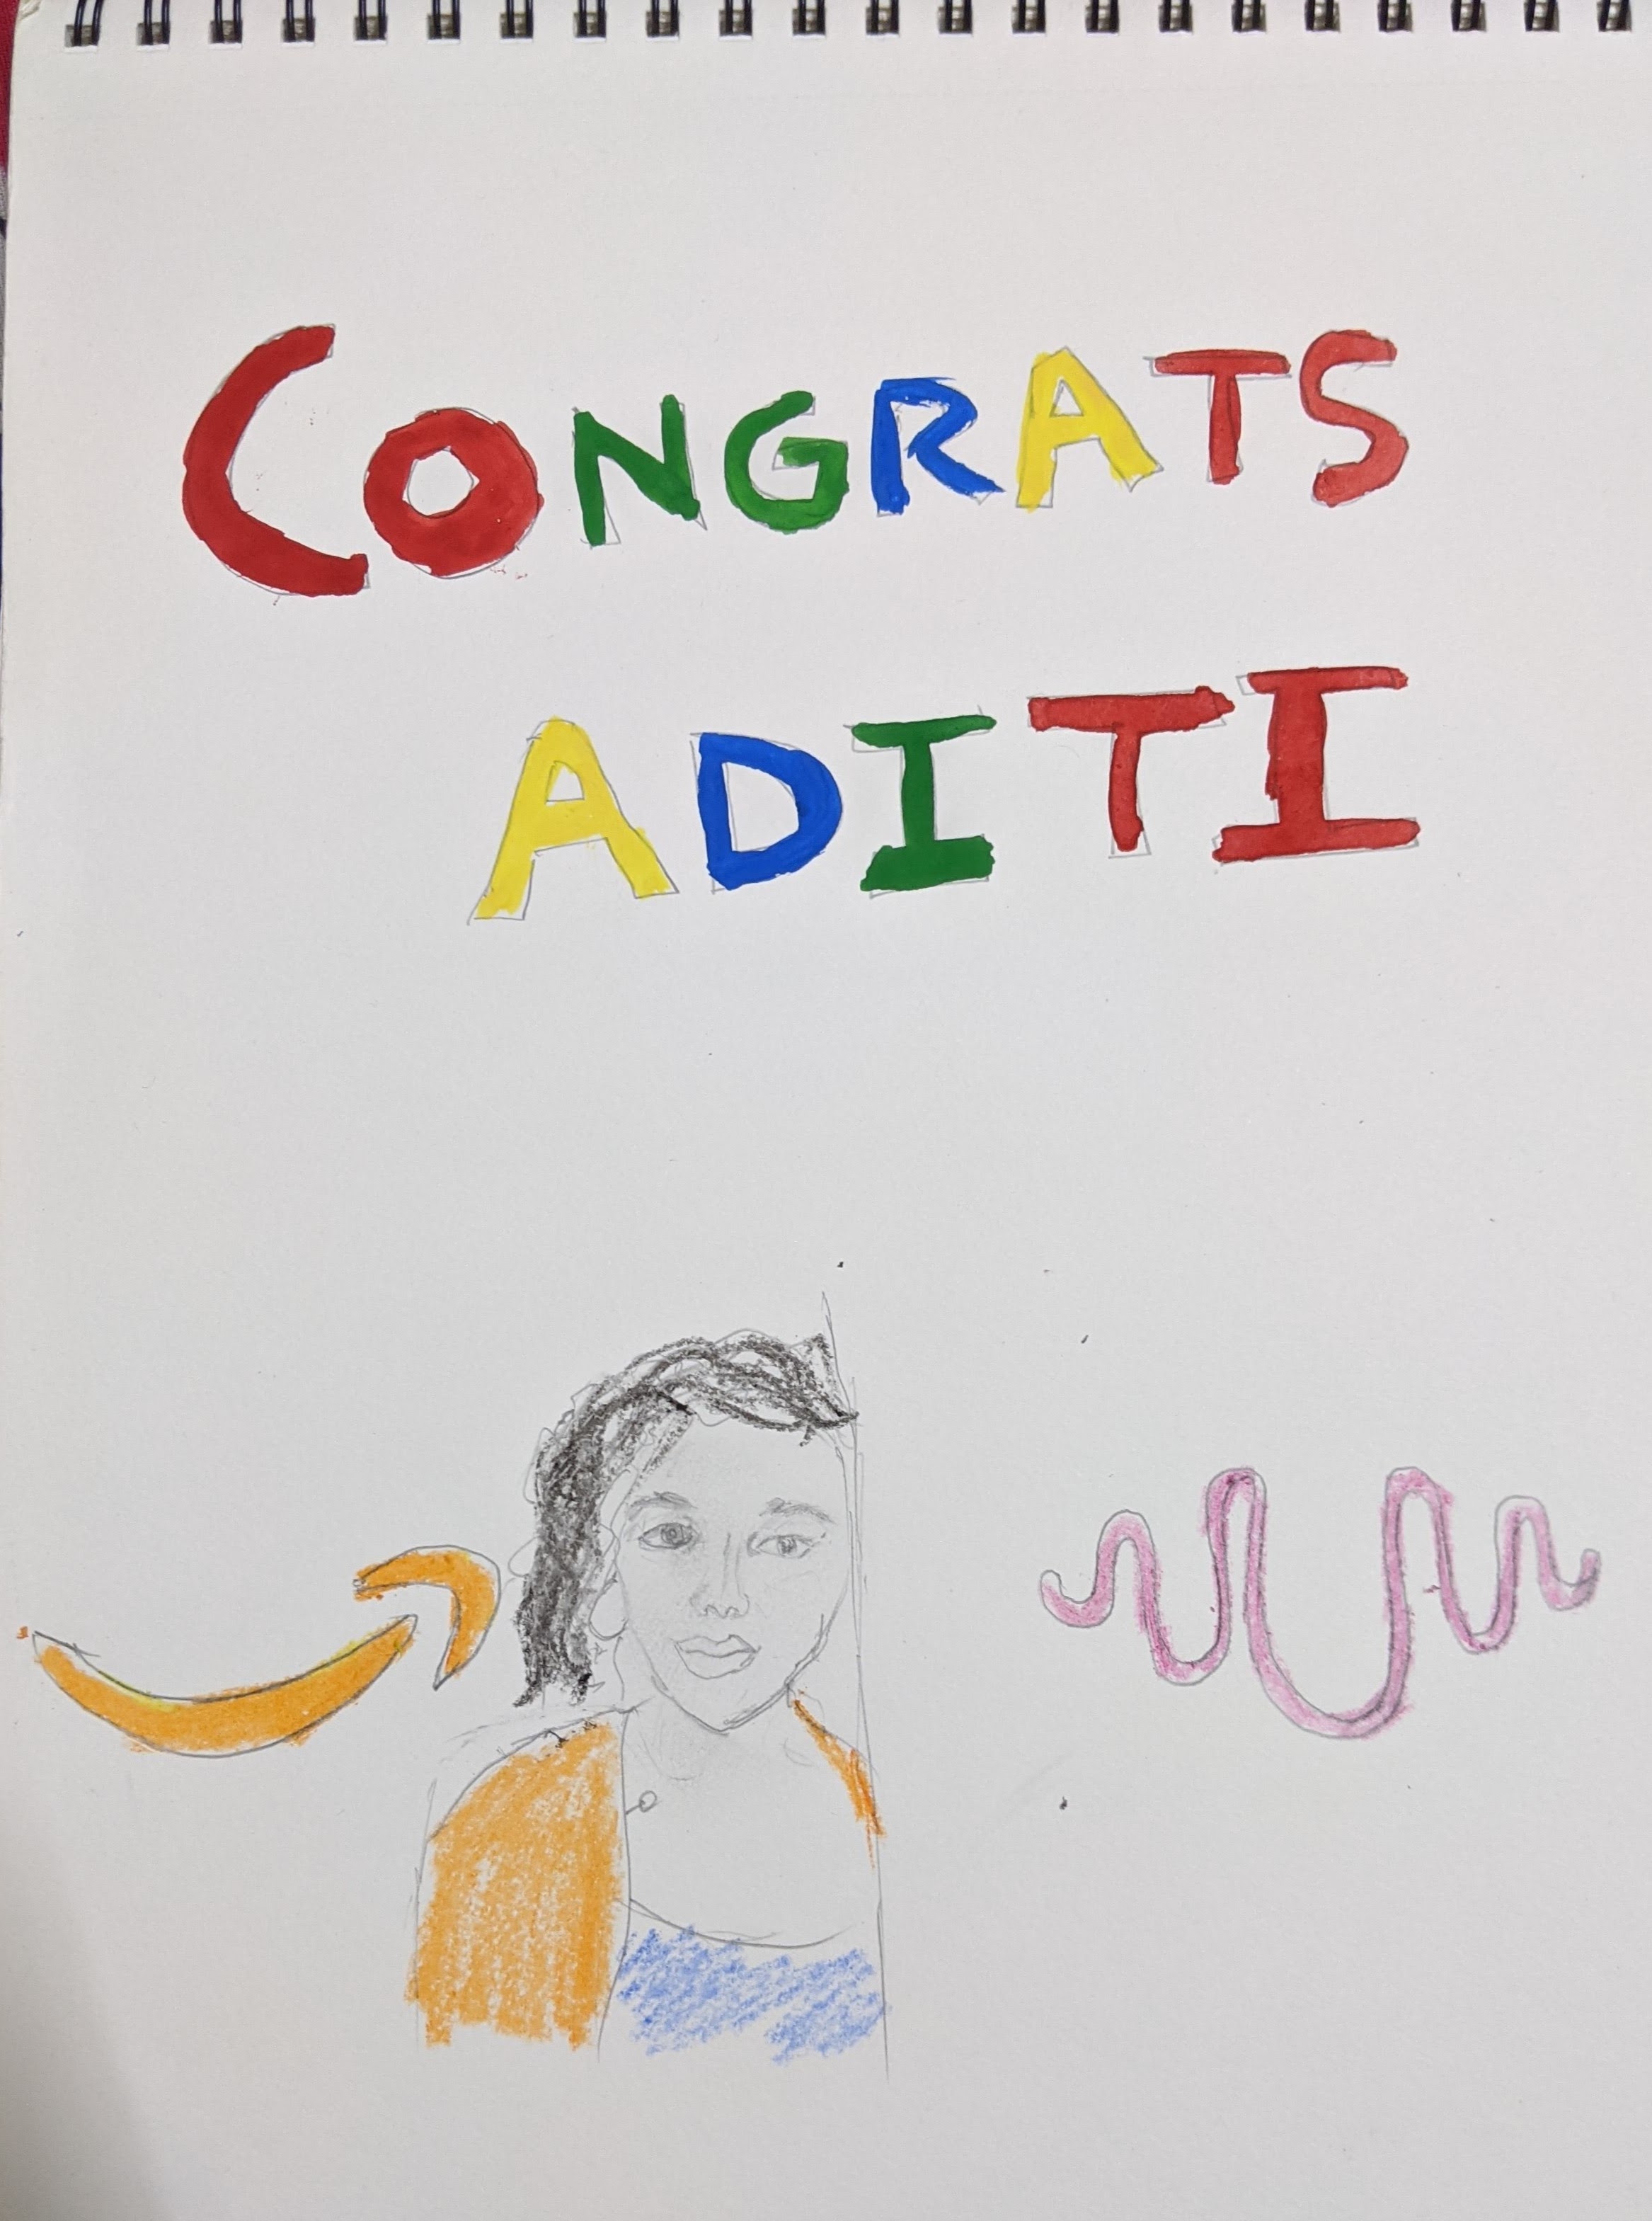 CONGRATS
ADITI